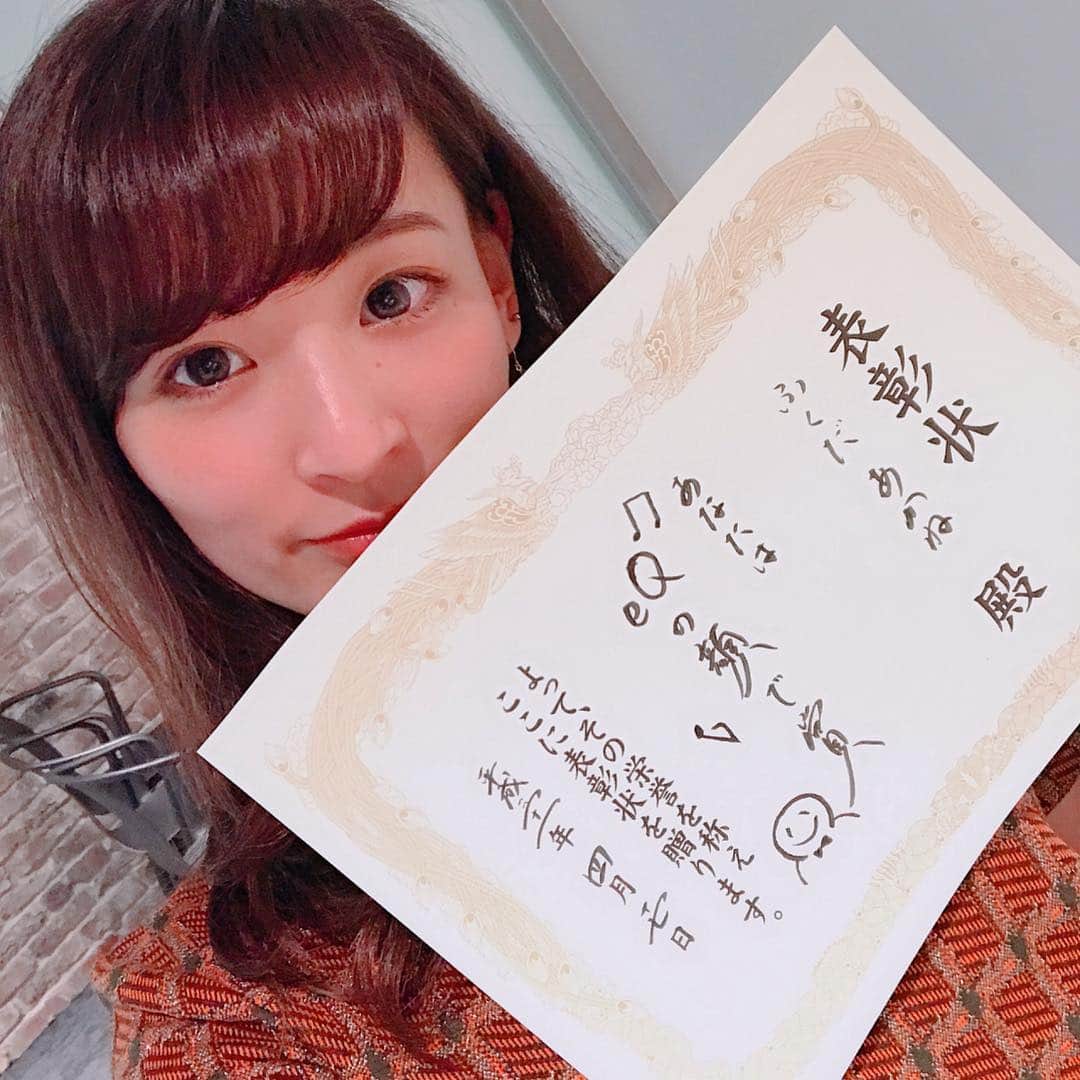 表彰状
ふくだ あかね 殿
あなたは
♫eQの顔で賞
よって、その栄誉を称え
ここに表彰状を贈ります。
年 四月七日